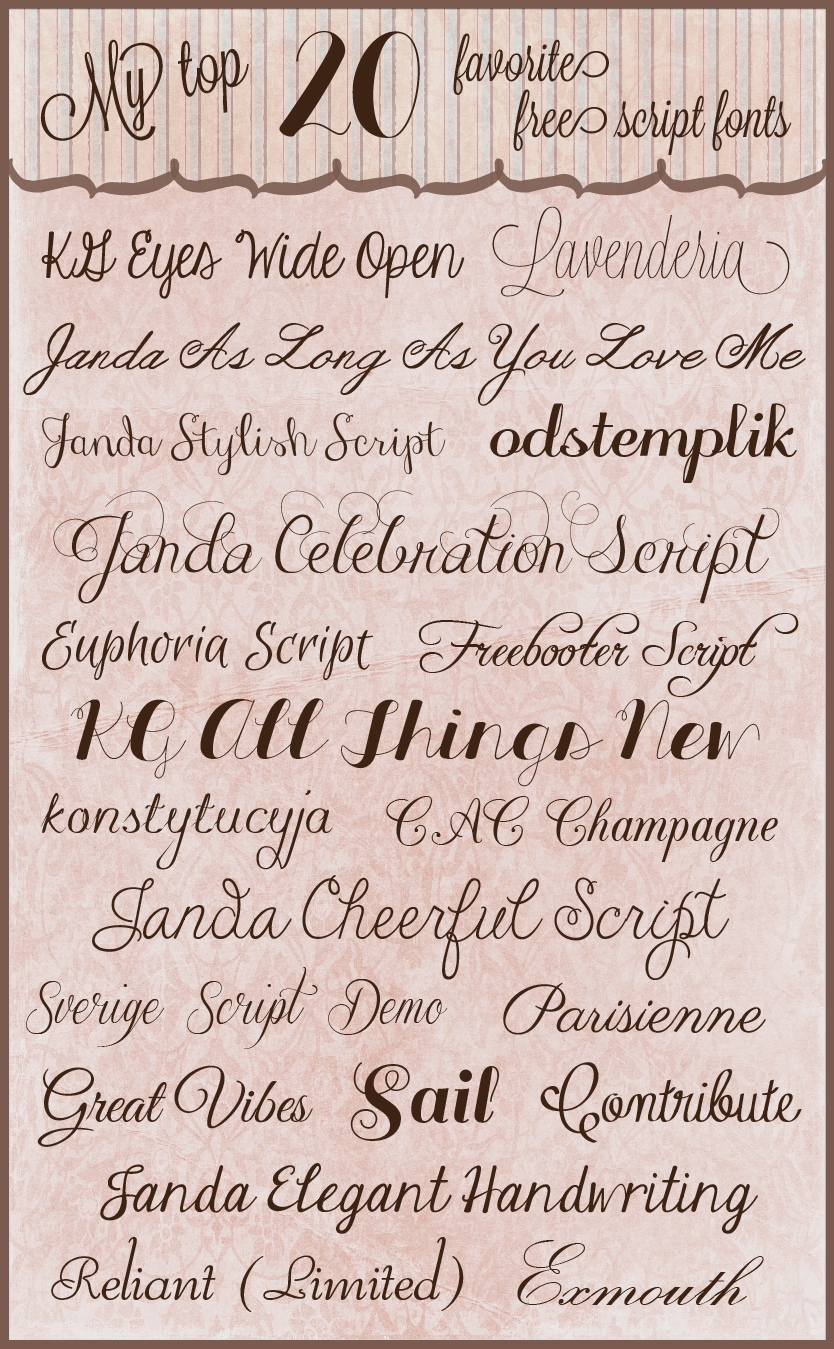 My top 20 favorite
free script fonts
KG Eyes Wide Open Lavenderia
Janda As Long As You Love Me
Janda Stylish Script odstemplik
Janda Celebration Script
Euphoria Script Freebooter Script
KG All Things New
konstytucyja CAC Champagne
Janda Cheerful Script
Sverige Script Demo Parisienne
Great Vibes Sail Contribute
Janda Elegant Handwriting
Reliant (Limited) Exmouth